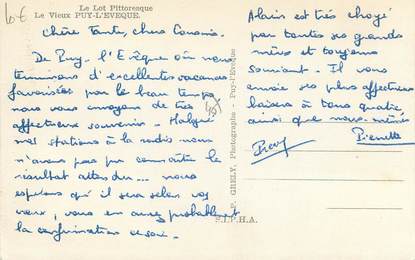 Le Lot Pittoresque
Le Vieux PUY-L'EVEQUE.
Chère Tante, chers Cousins.
De Puy-l'Evêque où nous
terminons d'excellentes vacances
favorisées par le beau temps
nous vous envoyons de très
affectueux souvenirs. Malgré
nos stations à la radio nous
n'avons pas pu connaître le
résultat attendu... nous
espérons qu'il sera selon vos
vœux, vous en aurez probablement
la confirmation ce soir.
Alain est très choyé
par tantes ses grands
mères et toujours
souriant. Il vous
envoie ses plus affectueux
baisers à tous quatre
ainsi que nous-mêmes
Pierrette
P. GRELY, Photographe - Puy-l'Evêque
S.I.P.H.A.